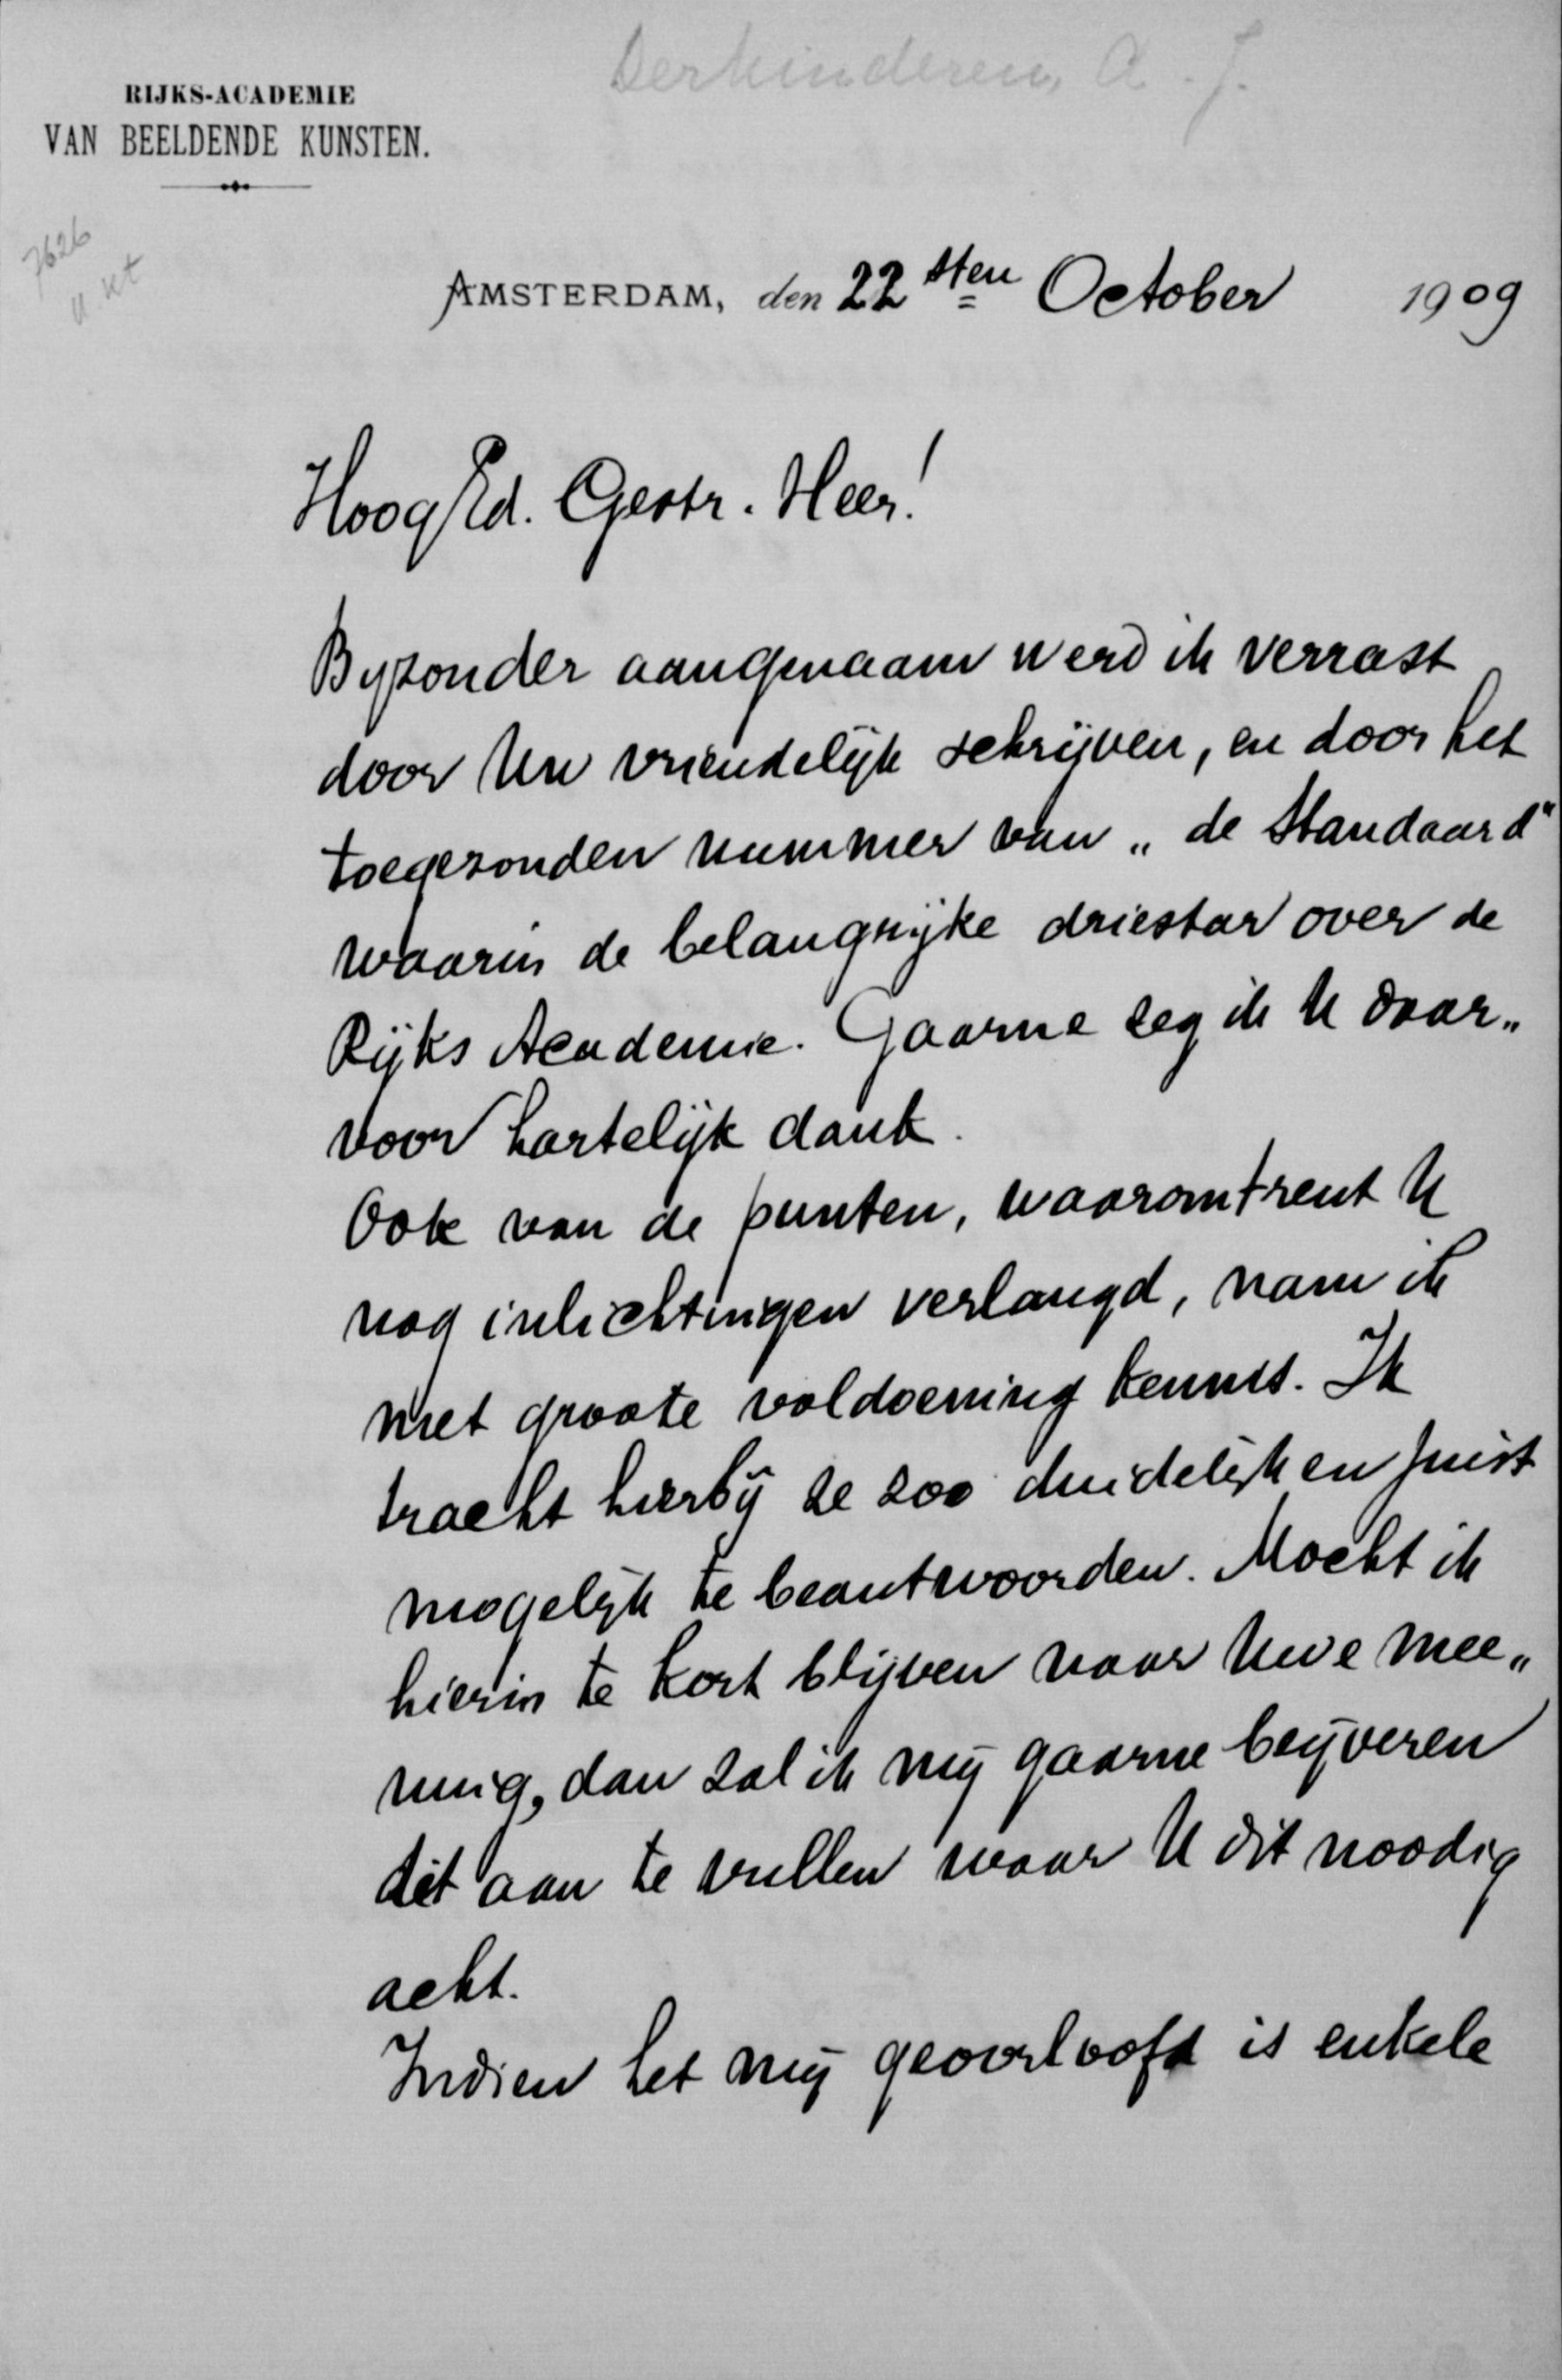 Derkinderen, A. J.
RIJKS-ACADEMIE
VAN BEELDENDE KUNSTEN.
7626
AMSTERDAM, den 22sten October 1909
HoogEd. Gestr. Heer!
Byzonder aangenaam werd ik verrast
door Uw vriendelijk schrijven, en door het
toegezonden nummer van „de Standaard"
waarin de belangrijke driestar over de
Rijks Academie. Gaarne zeg ik U daar„
voor hartelijk dank.
Ook van de punten, waaromtrent U
nog inlichtingen verlangd, nam ik
met groote voldoening kennis. Ik
tracht hierbij ze zoo duidelijk en juist
mogelijk te beantwoorden. Mocht ik
hierin te kort blijven naar Uwe mee„
ning, dan zal ik mij gaarne beijveren
dit aan te vullen waar U dit noodig
acht.
Indien het mij geoorloofd is enkele